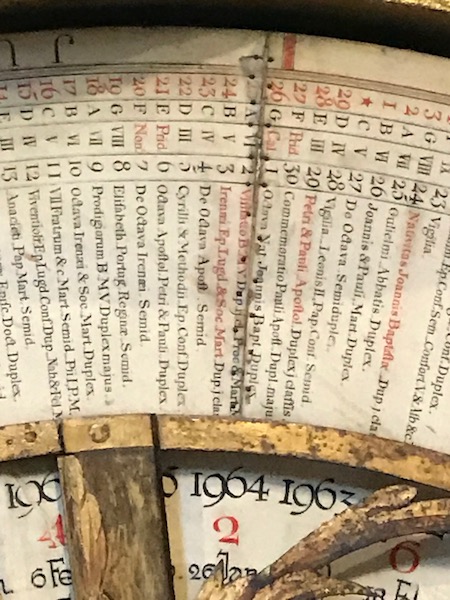 IX 23 Vigilia
3 G VIII 24 Nativitas Joannis Baptistæ Dup j cla
2 A VII 25 Gulielmi Abbatis Duplex
1 B VI 26 Joannis & Pauli Mart. Duplex
★ C V 27 De Octava Semiduplex
29 D IV 28 Vigilia Leonis II Pap. Conf. Semid.
28 E III 29 Petri & Pauli Apostol. Duplex j classis
27 F Prid 30 Commemoratio Pauli Apost. Dupl. maju
26 G Cal 1 Octava Nat. Joannis Bapt. Duplex
A VI 2
24 B V 3 Irenæi Ep. Lugd. & Soc. Mart Dup j cla
23 C IV 4 De Octava Apost. Semid
22 D III 5 Cyrilli & Methodii Ep. Conf. Duplex
21 E Prid 6 Octava Apostol. Petri & Pauli Duplex
20 F Non 7 De Octava Irenæi Semid.
19 G VIII 8 Elisabeth Portug. Reginæ Semid.
18 A VII 9 Prodigiorum B M V Duplex majus
17 B VI 10 Octava Irenæi & Soc. Mart. Duplex
16 C V 11 VII Fratrum & c Mart. Semid. Pii I P.M.
15 D IV 12 Viventioli Ep. Lugd. Conf. Dup. Nab. & Fel. M
14 E III 13 Anacleti Pap. Mart Semid
J U
196 1964 1963
4 2 6
6 Fe 26 Jan